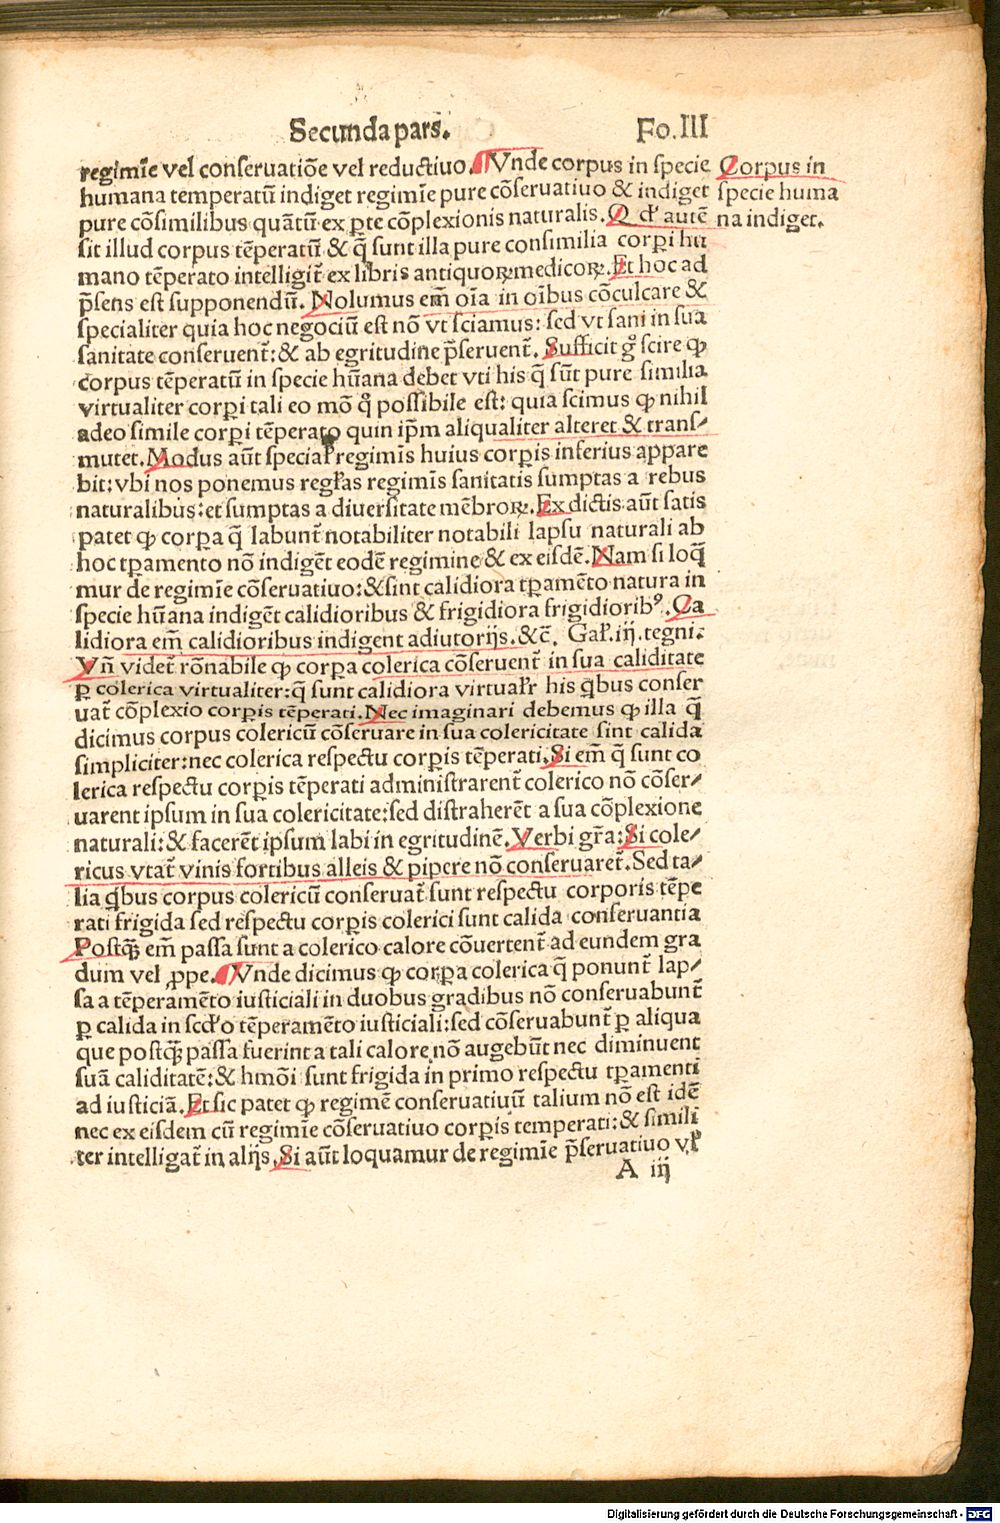 Secunda pars. Fo. III
regimīe vel conseruatiōe vel reductiuo. Vnde corpus in specie
humana temperatū indiget regimīe pure cōseruatiuo & indiget
pure cōsimilibus quātū ex ꝑte cōplexionis naturalis. Qd' autē
sit illud corpus tēperatū & q̄ sunt illa pure consimilia corꝑi hu
mano tēperato intelligit̄ ex libris antiquoꝝ medicoꝝ. Et hoc ad
p̄sens est supponendū. Nolumus em̄ oīa in oībus cōculcare &
specialiter quia hoc negociū est nō vt sciamus: sed vt sani in sua
sanitate conseruent̄: & ab egritudine p̄seruent̄. Sufficit gͦ scire ꝙ
corpus tēperatū in specie hūana debet vti his q̄ sūt pure similia
virtualiter corꝑi tali eo mō qͦ possibile est: quia scimus ꝙ nihil
adeo simile corꝑi tēperato quin ip̄m aliqualiter alteret & trans⸗
mutet. Modus aūt special'r regimīs huius corꝑis inferius appare
bit: vbi nos ponemus regl'as regimīs sanitatis sumptas a rebus
naturalibus: et sumptas a diuersitate mēbroꝝ. Ex dictis aūt satis
patet ꝙ corꝑa q̄ labunt̄ notabiliter notabili lapsu naturali ab
hoc tꝑamento nō indigēt eodē regimine & ex eisdē. Nam si loq̄
mur de regimīe cōseruatiuo: & sint calidiora tꝑamēto natura in
specie hūana indigēt calidioribus & frigidiora frigidioribꝰ. Ca
lidiora em̄ calidioribus indigent adiutorijs. &c̄. Gal'. iij. tegni.
Vn̄ videt̄ rōnabile ꝙ corꝑa colerica cōseruent̄ in sua caliditate
ꝑ colerica virtualiter: q̄ sunt calidiora virtual'r his q̄bus conser
uat̄ cōplexio corꝑis tēperati. Nec imaginari debemus ꝙ illa q̄
dicimus corpus colericū cōseruare in sua colericitate sint calida
simpliciter: nec colerica respectu corꝑis tēperati. Si em̄ q̄ sunt co
lerica respectu corꝑis tēperati administrarent̄ colerico nō cōser⸗
uarent ipsum in sua colericitate: sed distraherēt a sua cōplexione
naturali: & facerēt ipsum labi in egritudinē. Verbi gr̄a: Si cole⸗
ricus vtat̄ vinis fortibus alleis & pipere nō conseruaret̄. Sed ta⸗
lia q̄bus corpus colericū conseruat̄ sunt respectu corporis tēpe
rati frigida sed respectu corꝑis colerici sunt calida conseruantia
Postq̄ em̄ passa sunt a colerico calore cōuertent̄ ad eundem gra
dum vel ꝓpe. Vnde dicimus ꝙ corꝑa colerica q̄ ponunt̄ lap⸗
sa a tēperamēto iusticiali in duobus gradibus nō conseruabunt̄
ꝑ calida in scd'o tēperamēto iusticiali: sed cōseruabunt̄ ꝑ aliqua
que postq̄ passa fuerint a tali calore nō augebūt nec diminuent
suā caliditatē: & hmōi sunt frigida in primo respectu tꝑamenti
ad iusticiā. Et sic patet ꝙ regimē conseruatiuū talium nō est idē
nec ex eisdem cū regimīe cōseruatiuo corꝑis temperati: & simili
ter intelligat̄ in alijs. Si aūt loquamur de regimīe p̄seruatiuo vl'
A iij
Corpus in
specie huma
na indiget.
Digitalisierung gefördert durch die Deutsche Forschungsgemeinschaft - DFG